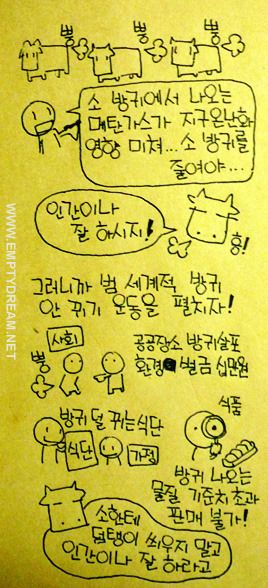 뿡 뿡 뿡
소 방귀에서 나오는
메탄가스가 지구온난화
영향 미쳐... 소 방귀를
줄여야...
인간이나
잘 하시지!
흥!
WWW.EMPTYDREAM.NET
그러니까 범 세계적 방귀
안 뀌기 운동을 펼치자!
사회
뿡
공공장소 방귀살포
환경 벌금 십만원
방귀 덜 뀌는 식단
식단
가정
식품
방귀 나오는
물질 기준치 초과
판매 불가!
소한테
덤탱이 씌우지 말고
인간이나 잘 하라고